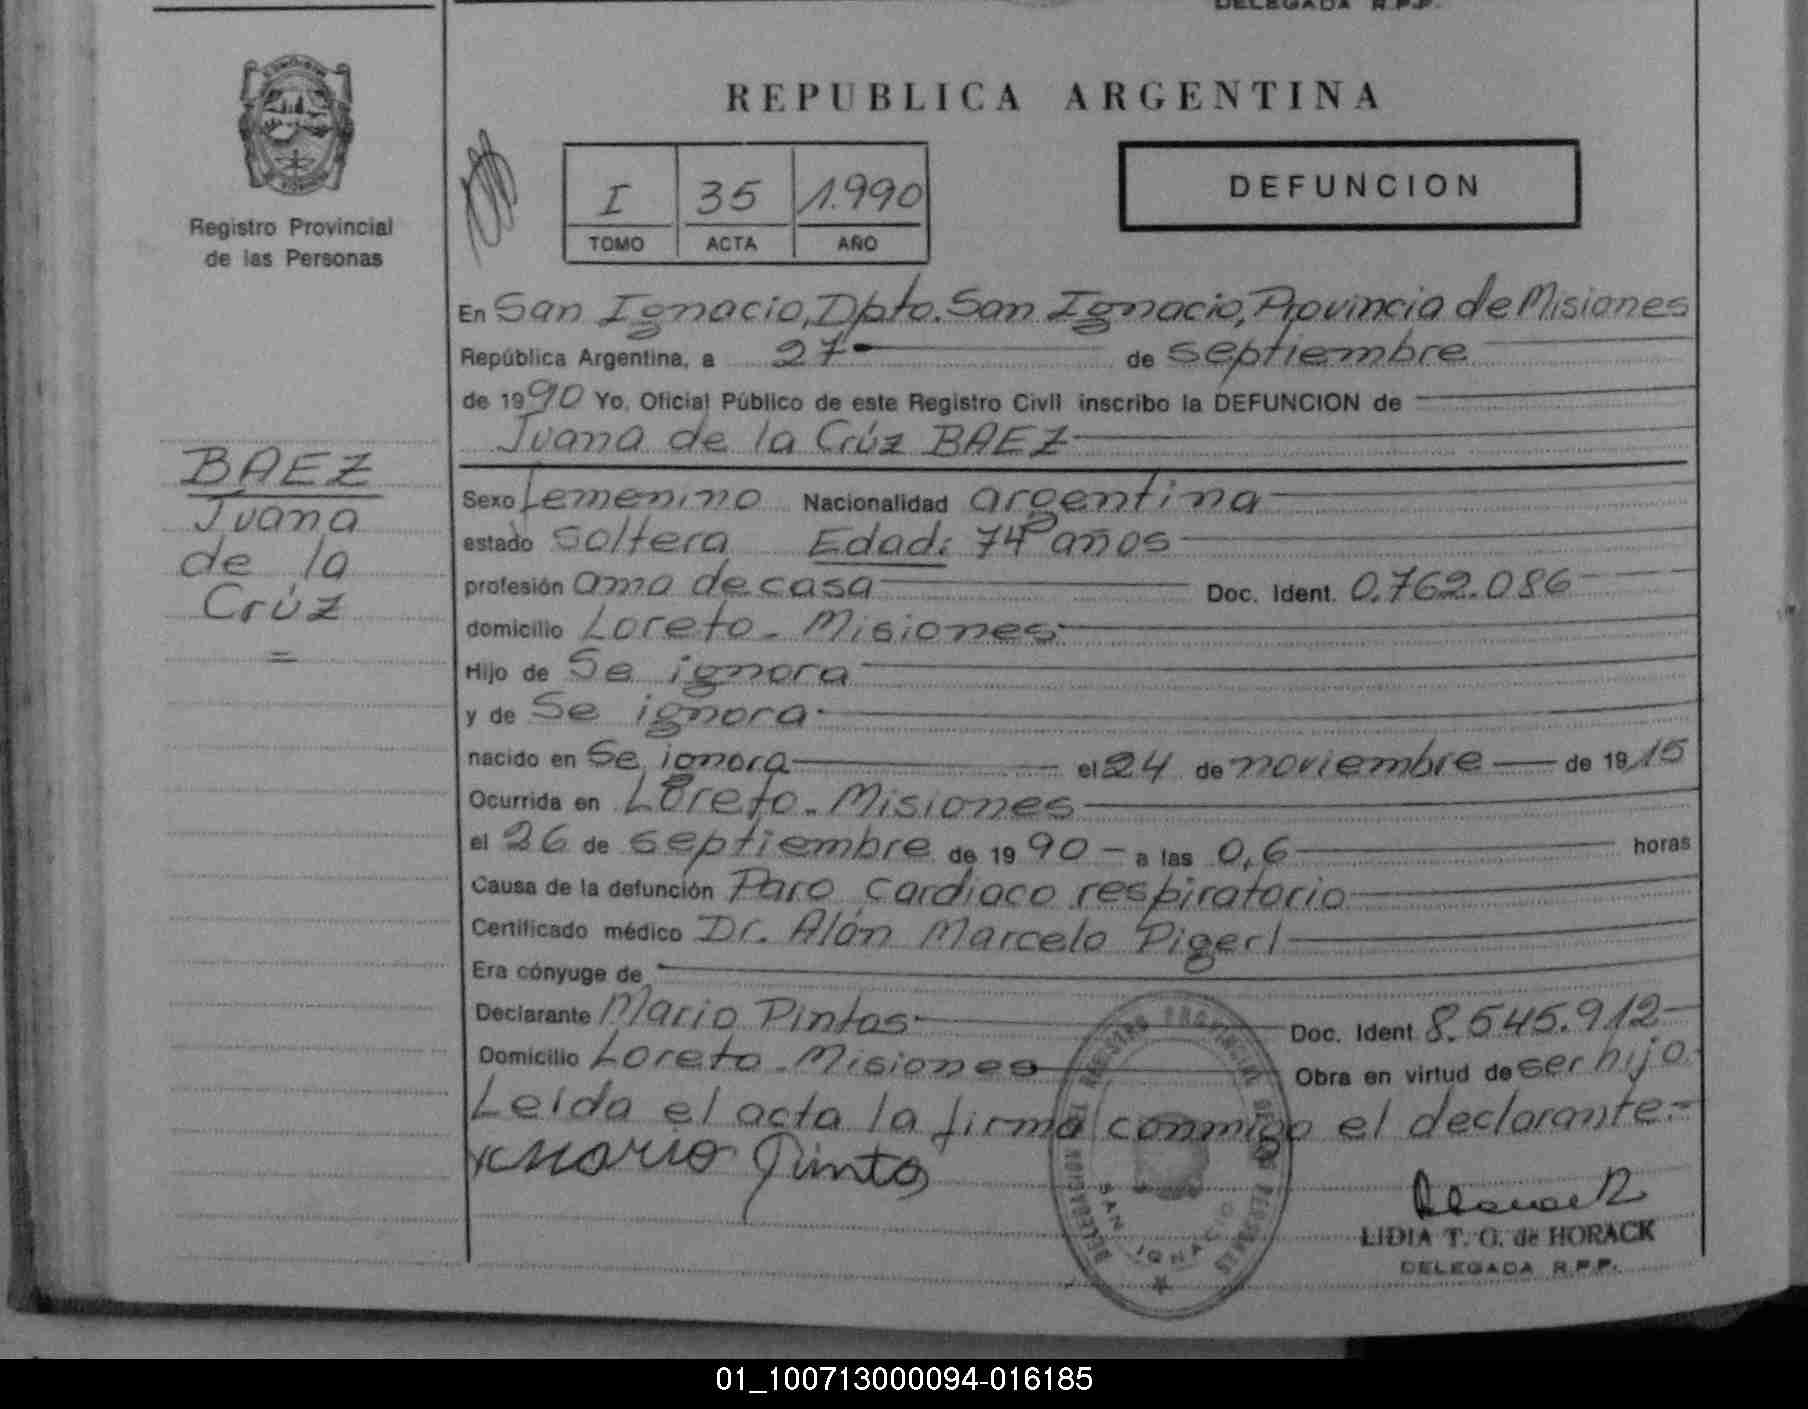 DELEGADA R.P.P.
REPUBLICA ARGENTINA
Registro Provincial
de las Personas
I 35 1.990
TOMO ACTA AÑO
DEFUNCION
En San Ignacio, Dpto. San Ignacio, Provincia de Misiones
República Argentina, a 27 de septiembre
de 1990 Yo, Oficial Público de este Registro Civil inscribo la DEFUNCION de
Juana de la Crúz BAEZ
BAEZ
Juana
de la
Crúz
Sexo femenino Nacionalidad argentina
estado soltera Edad: 74 años
profesión ama de casa Doc. Ident. 0.762.086
domicilio Loreto - Misiones
Hijo de Se ignora
y de Se ignora
nacido en Se ignora el 24 de noviembre de 1915
Ocurrida en Loreto - Misiones
el 26 de septiembre de 1990 - a las 0,6 horas
Causa de la defunción Paro cardiaco respiratorio
Certificado médico Dr. Alán Marcelo Pigerl
Era cónyuge de
Declarante Mario Pintos Doc. Ident 8.545.912
Domicilio Loreto - Misiones Obra en virtud de ser hijo
Leída el acta la firma conmigo el declarante.-
x Mario Pintos
REGISTRO PROVINCIAL DE LAS PERSONAS
SAN IGNACIO
LIDIA T. O. de HORACK
DELEGADA R.P.P.
01_100713000094-016185